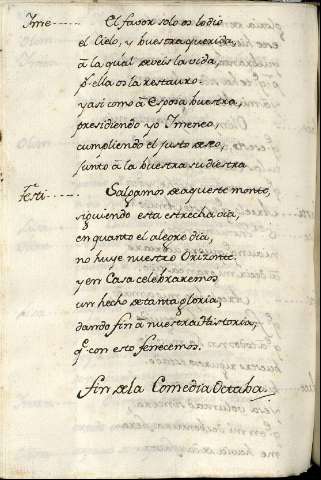 Ime----- El fabor solo os lo dio
el Cielo, y buestra querida,
a la qual debeis la vida,
pr. ella os la restauro.
y asi como a Esposa buestra,
presidiendo yo Imeneo,
cumpliendo el justo deseo,
junto a la buestra su diestra
Festi----- Salgamos de aqueste monte,
siguiendo esta estrecha via,
en quanto el alegre dia,
no huye nuestro Orizonte.
y en Casa celebraremos
un hecho de tanta gloria,
dando fin a nuestra Historia,
qe. con esto fenecemos.
fin de la Comedia Octaba